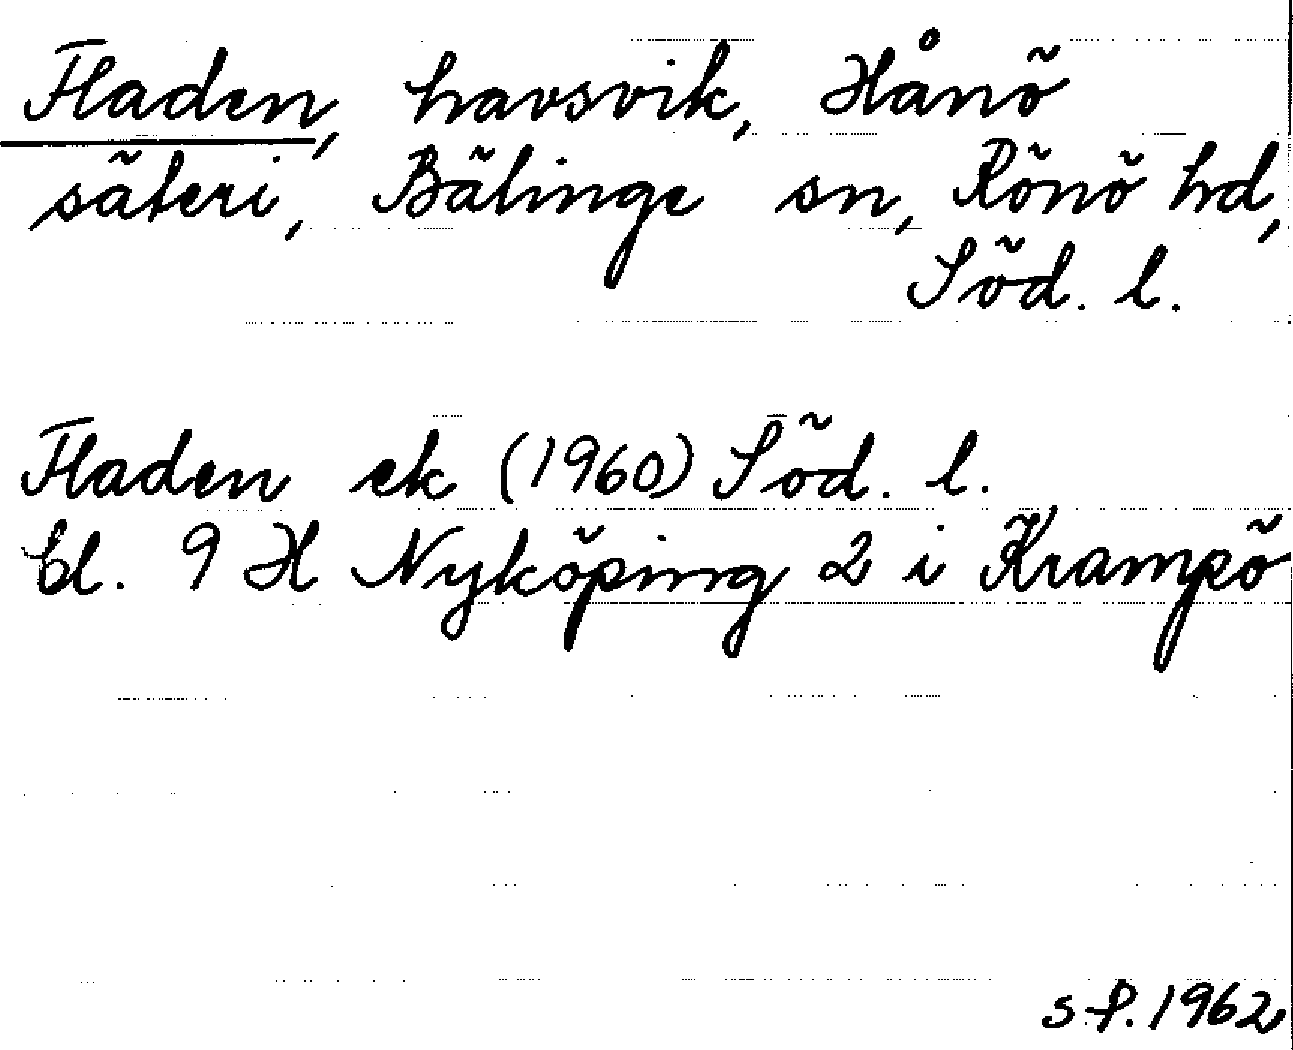 Fladen, havsvik, Hånö
säteri, Bälinge sn, Rönö hd,
Söd. l.
Fladen ek (1960) Söd. l.
bl. 9 H Nyköping 2 i Krampö
S.P. 1962